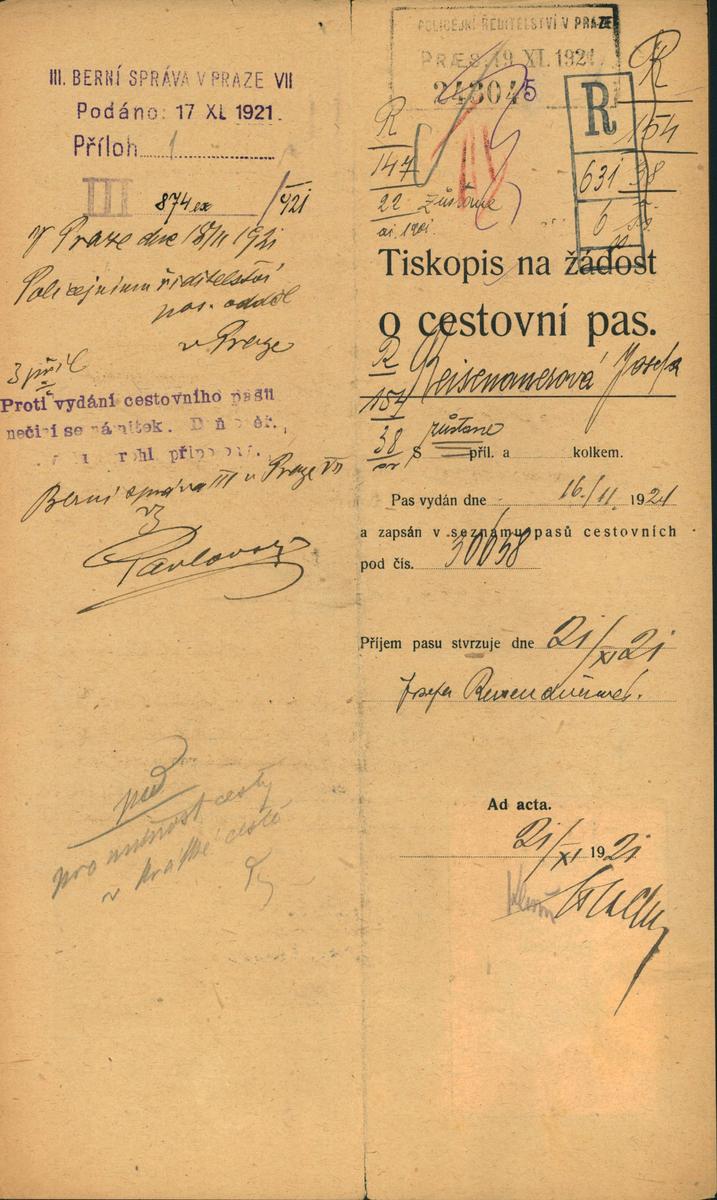 III. BERNÍ SPRÁVA V PRAZE VII
Podáno: 17 XI. 1921.
Příloh 1
III 874 ex /921
V Praze dne 18/11 1921
Policejnímu ředitelství
pas. odděl
v Praze
3 příl
Proti vydání cestovního pasu
nečiní se námitek.
Berní správa III v Praze VII
pro nutnost cesty
v krátké době
POLICEJNÍ ŘEDITELSTVÍ V PRAZE
PRÆS. 19 XI. 1921
248045
R
147
22
zůstane
R
154
38
R
631
6
Tiskopis na žádost
o cestovní pas.
R
154
38
Reisenauerová Josefa
zůstane
S příl. a kolkem.
Pas vydán dne 16./11. 1921
a zapsán v seznamu pasů cestovních
pod čís. 30638
Příjem pasu stvrzuje dne 21/XI 21
Josefa
Ad acta.
21/XI 1921